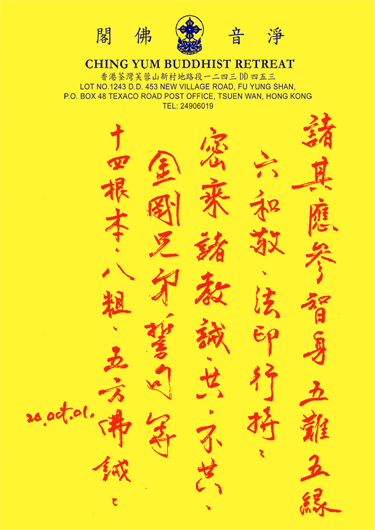 閣佛 音淨
CHING YUM BUDDHIST RETREAT
香港荃灣芙蓉山新村地路段一二四三 DD 四五三
LOT NO.1243 D.D. 453 NEW VILLAGE ROAD, FU YUNG SHAN,
P.O. BOX 48 TEXACO ROAD POST OFFICE, TSUEN WAN, HONG KONG
TEL: 24906019
諸其應參智身五難五緣
六和敬、法印行持、
密乘諸教誡、共、不共、
金剛兄弟誓句等
十四根本、八粗、五方佛誡、
20.Oct.01.